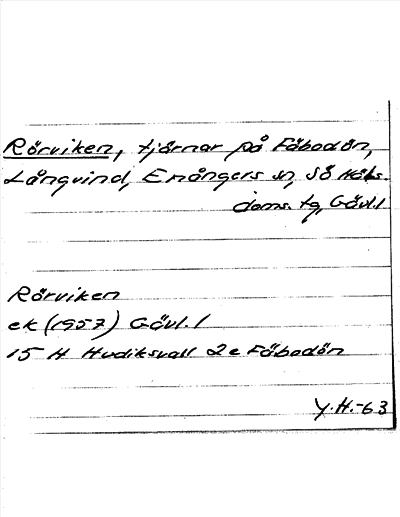 Rörviken, tjärnar på Fäbodön,
Långvind, Enångers sn, Sö Häls.
doms. tg, Gävl.l
Rörviken
ek (1957) Gävl. l
15 H Hudiksvall 2 e Fäbodön
Y.H.-63